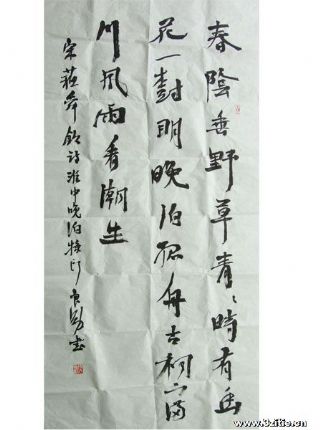 春陰垂野草青〻時有幽
花一樹明晚泊孤舟古祠下滿
川風雨看潮生
宋蘇舜欽詩淮中晚泊犢頭 書